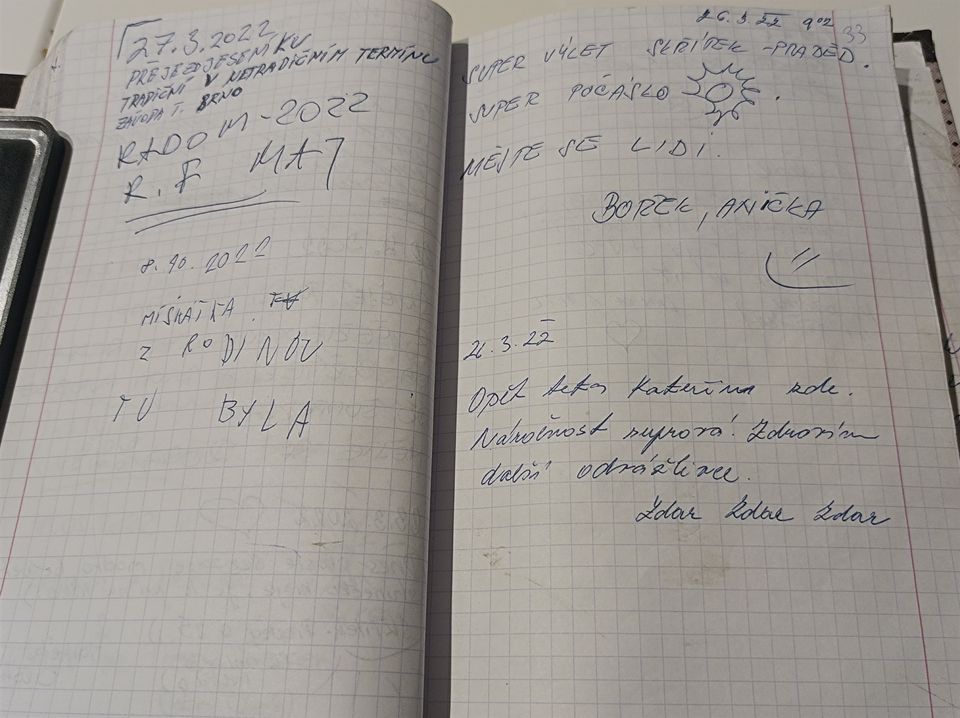 27.3.2022
PŘEJEZD JESENÍKŮ
TRADIČNÍ V NETRADIČNÍM TERMÍNU
BRNO
RADOM-2022
R.F. MAJ
8.10.2022
MIŠKATKA
Z RODINOU
TU BYLA
26.3.22 9:02 33
SUPER VÝLET SKŘÍTEK-PRADĚD.
SUPER POČÁSLO .
MĚJTE SE LIDI.
BOREK, ANIČKA
26.3.22
Opět Kateřina zde.
Náročnost suprová. Zdravím
další odvážlivce.
Zdar Zdar Zdar